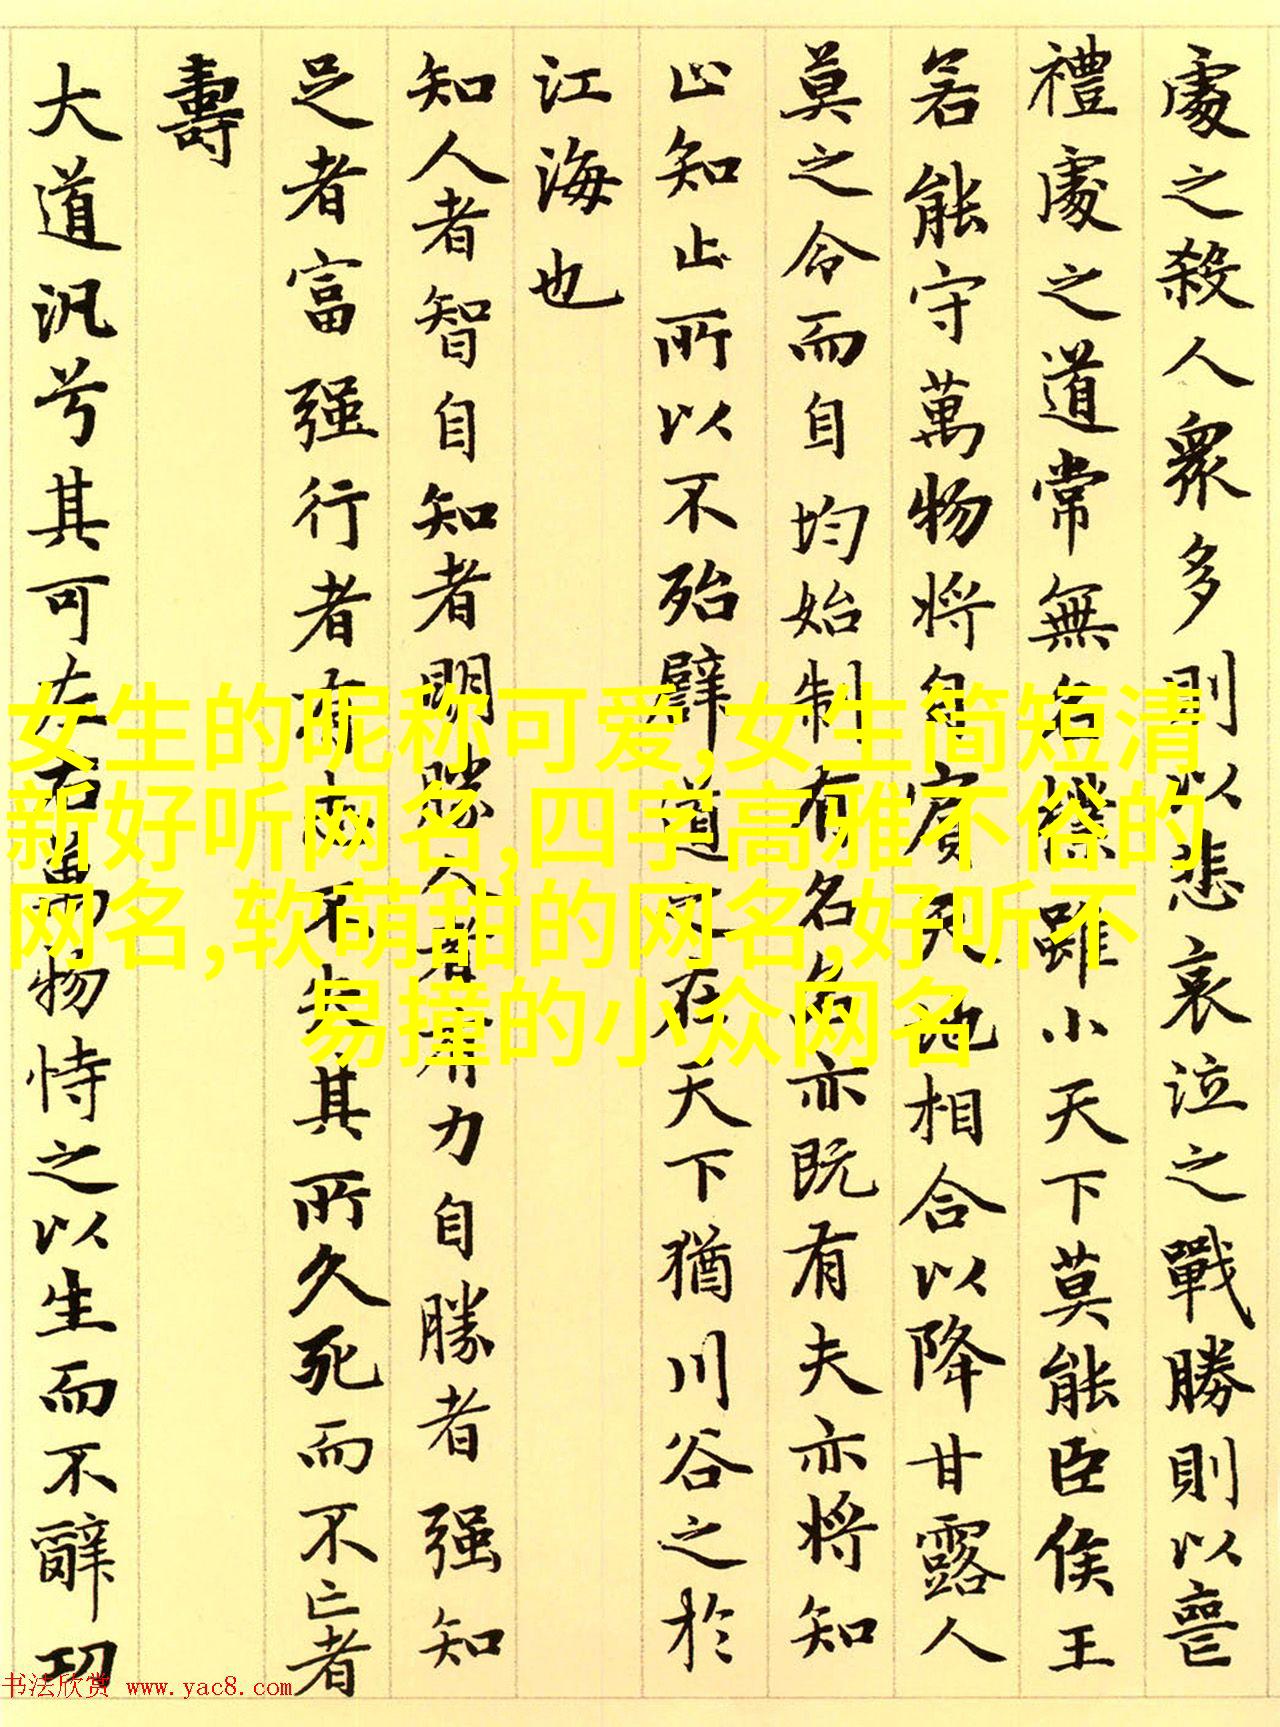 處之殺人衆多則以悲哀泣之戰勝則以喪
禮處之道常無名樸雖小天下莫能臣侯王
若能守萬物將自賓天地相合以降甘露人
莫之令而自均始制有名名亦既有夫亦將知
止知止所以不殆譬道之在天下猶川谷之於
江海也
知人者智自知者明勝人者有力自勝者强知
足者富强行者有志不失其所久死而不亡者
壽
大道汎兮其可左右萬物恃之以生而不辭功
女生的昵称可爱,女生简短清
新好听网名,四字高雅不俗的
网名,软萌甜的网名,好听不
易撞的小众网名
书法欣赏 www.yac8.com